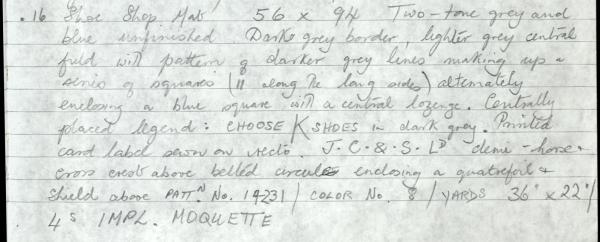 .16 Shoe Shop Mat 56 x 94 Two-tone grey and
blue unfinished. Dark grey border, lighter grey central
field with pattern of darker grey lines making up a
series of squares (11 along the long sides) alternately
enclosing a blue square with a central lozenge. Centrally
placed legend: CHOOSE K SHOES in dark grey. Printed
card label sewn on recto. J.C.&.S.Lᴰ demi-horse &
cross crest above belled circule enclosing a quatrefoil &
shield above PATTᴺ. No. 14231 / COLOR No. 8 / YARDS 36" x 22" /
4ˢ IMPL. MOQUETTE